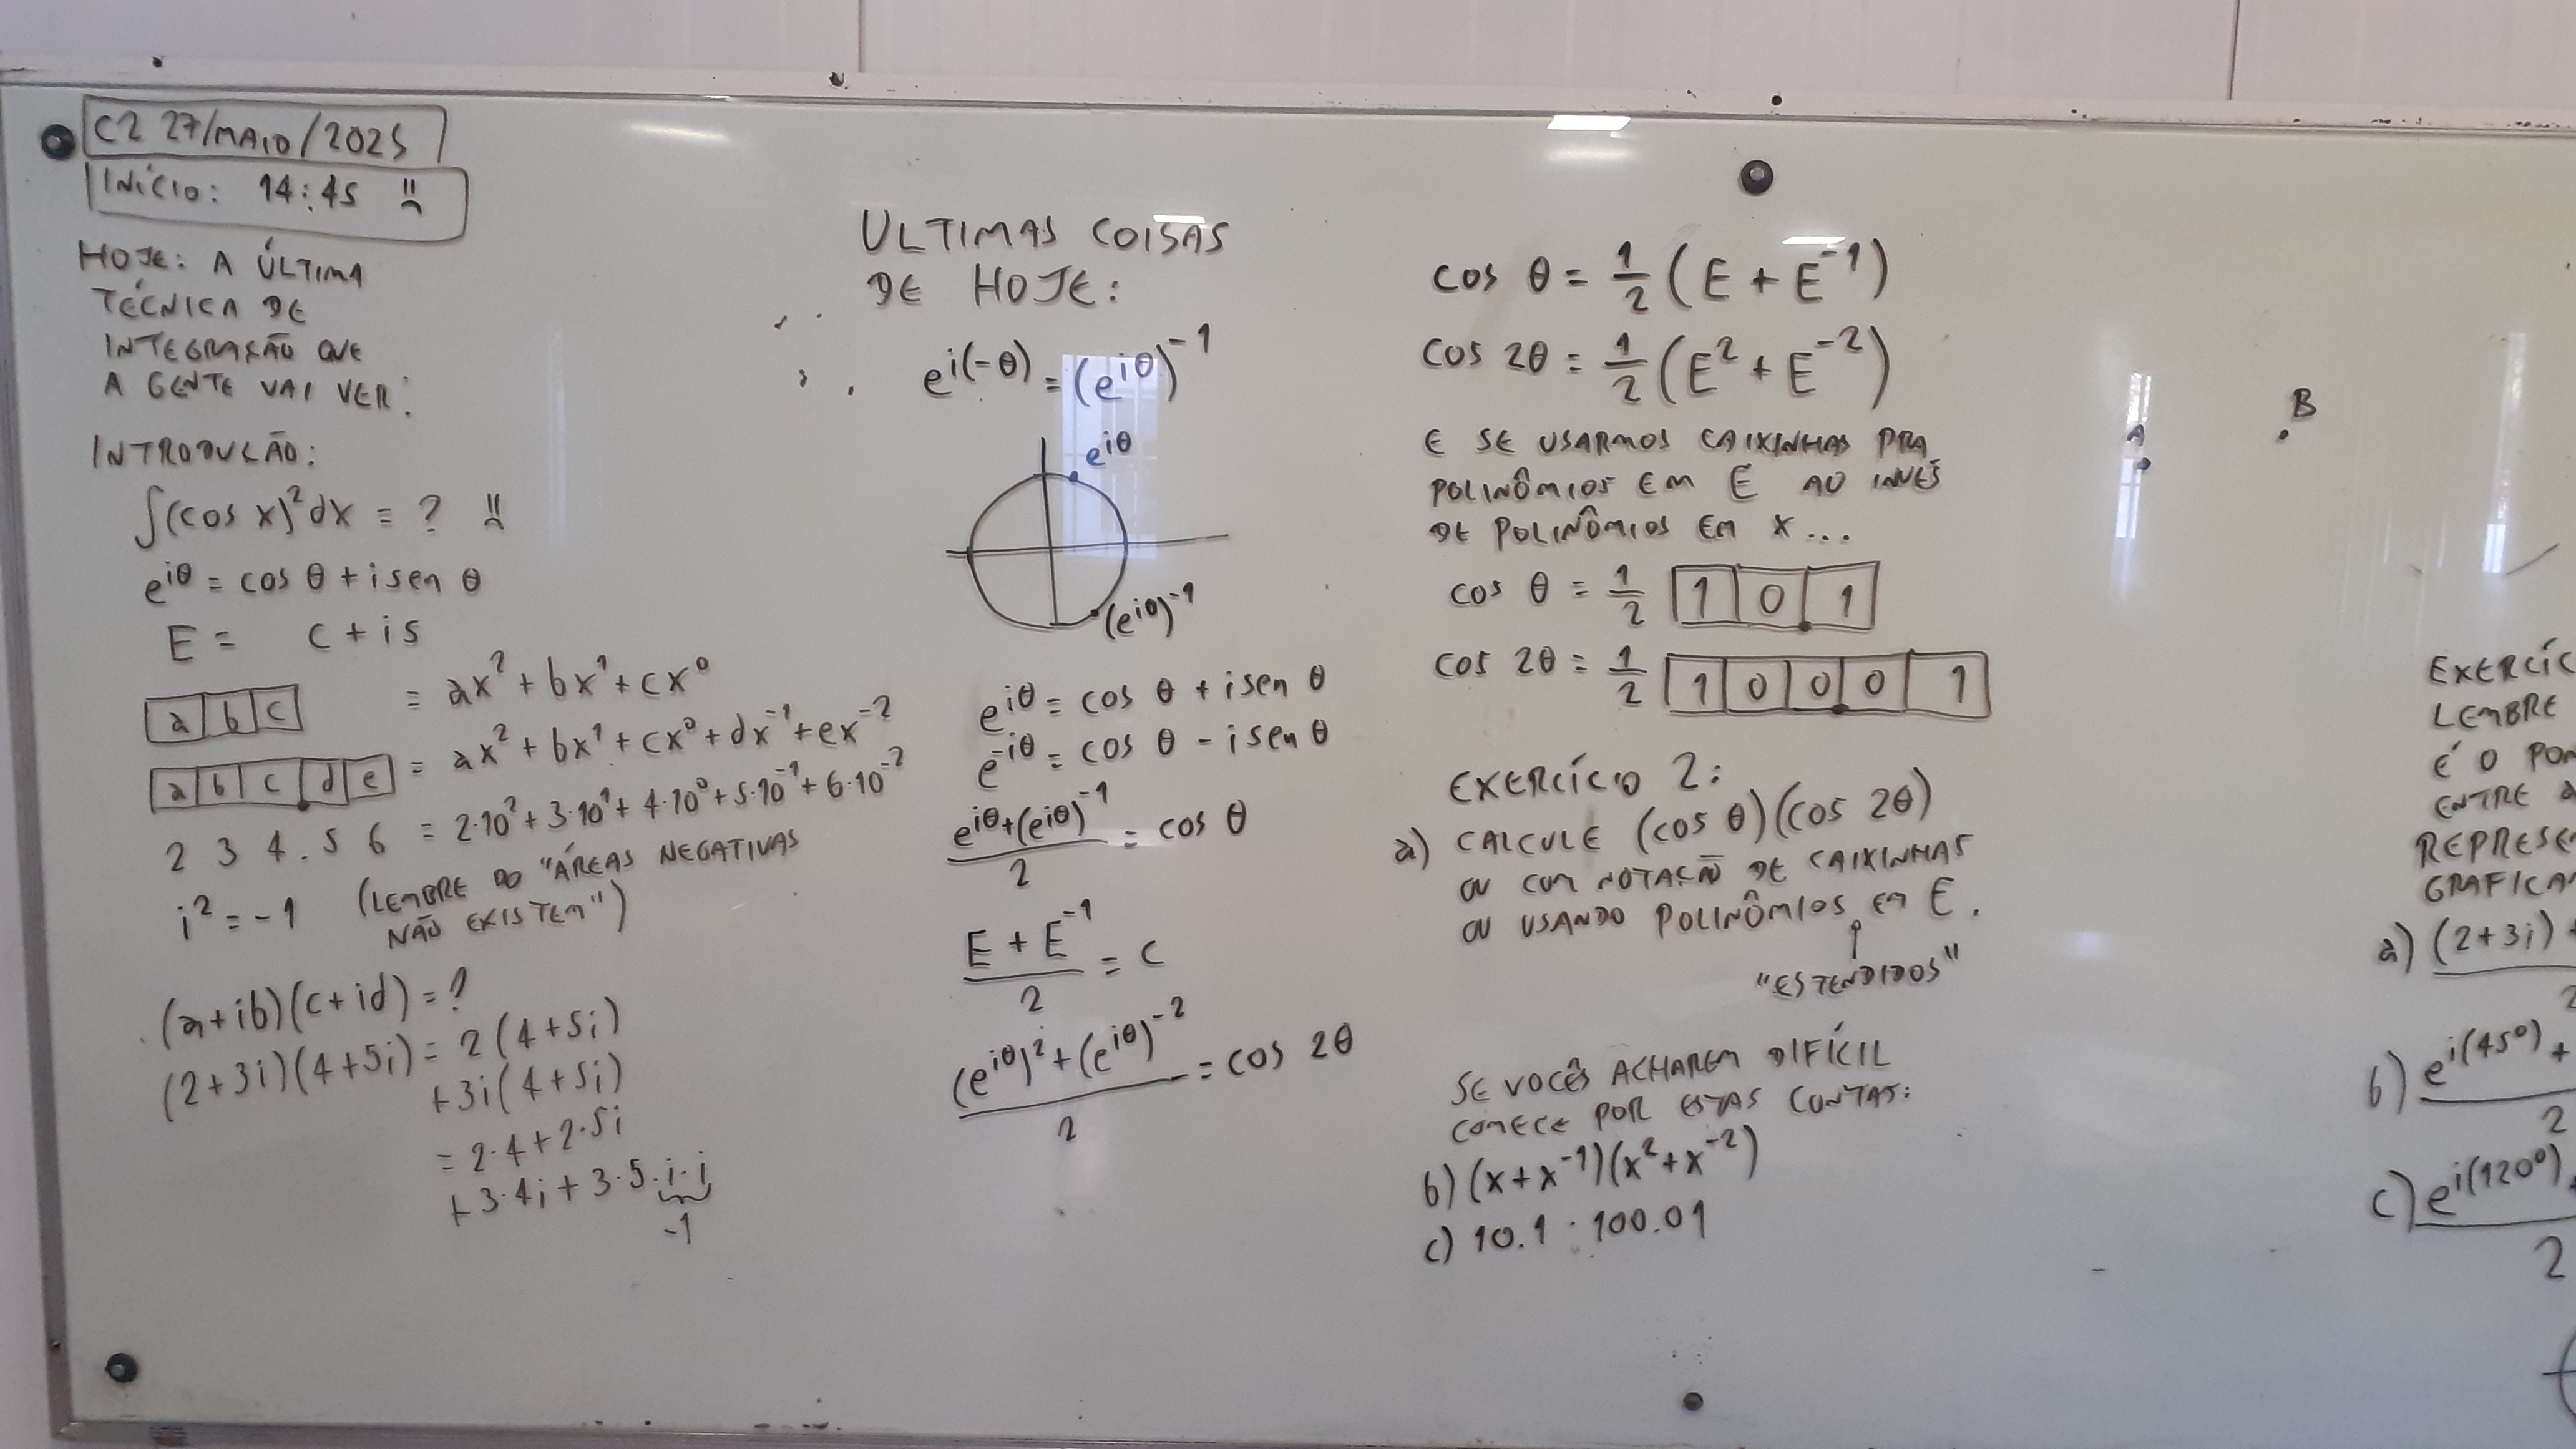 C2 27/MAIO/2025
INÍCIO: 14:45
HOJE: A ÚLTIMA
TÉCNICA DE
INTEGRAÇÃO QUE
A GENTE VAI VER:
INTRODUÇÃO:
∫(cos x)²dx = ?
e^{iθ} = cos θ + i sen θ
E = c + is
a b c = ax² + bx¹ + cx⁰
a b c . d e = ax² + bx¹ + cx⁰ + dx⁻¹ + ex⁻²
2 3 4 . 5 6 = 2·10² + 3·10¹ + 4·10⁰ + 5·10⁻¹ + 6·10⁻²
i² = -1 (LEMBRE DO "ÁREAS NEGATIVAS
NÃO EXISTEM")
(a+ib)(c+id) = ?
(2+3i)(4+5i) = 2(4+5i)
+3i(4+5i)
= 2·4+2·5i
+3·4i+3·5·i·i
-1
ULTIMAS COISAS
DE HOJE:
e^{i(-θ)} = (e^{iθ})⁻¹
e^{iθ}
(e^{iθ})⁻¹
e^{iθ} = cos θ + i sen θ
e^{-iθ} = cos θ - i sen θ
(e^{iθ}+(e^{iθ})⁻¹)/2 = cos θ
(E + E⁻¹)/2 = c
((e^{iθ})²+(e^{iθ})⁻²)/2 = cos 2θ
cos θ = 1/2 (E + E⁻¹)
cos 2θ = 1/2 (E² + E⁻²)
E SE USARMOS CAIXINHAS PRA
POLINÔMIOS EM E AO INVÉS
DE POLINÔMIOS EM X...
cos θ = 1/2 1 0 . 1
cos 2θ = 1/2 1 0 0 . 0 1
EXERCÍCIO 2:
a) CALCULE (cos θ)(cos 2θ)
OU COM NOTAÇÃO DE CAIXINHAS
OU USANDO POLINÔMIOS EM E.
↑
"ESTENDIDOS"
SE VOCÊS ACHAREM DIFÍCIL
COMECE POR ESTAS CONTAS:
b) (x+x⁻¹)(x²+x⁻²)
c) 10.1 · 100.01
A
B
EXERCÍC
LEMBRE
É O PON
ENTRE A
REPRESE
GRAFICA
a) (2+3i)+
2
b) e^{i(45°)}+
2
c) e^{i(120°)}+
2